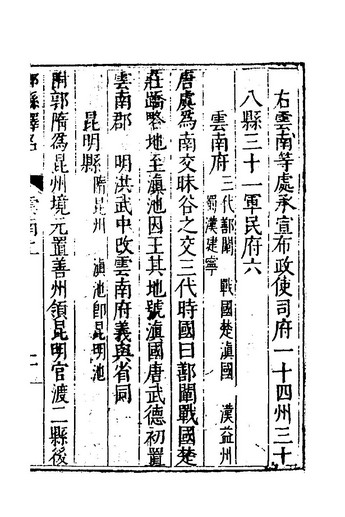 右雲南等處承宣布政使司府一十四州三十
八縣三十一軍民府六
雲南府
三代鄯闡 戰國楚滇國 漢益州
蜀漢建寧
唐虞為南交昧谷之交三代時國曰鄯闡戰國楚
莊蹻略地至滇池因王其地號滇國唐武德初置
雲南郡 明洪武中改雲南府義與省同
昆明縣
隋昆州 滇池即昆明池
附郭隋為昆州境元置善州領昆明官渡二縣後
郡縣釋名
雲南上